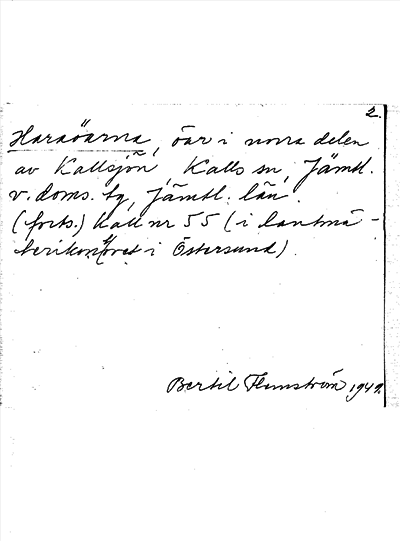 2.
Haraöarna, öar i norra delen
av Kallsjön, Kalls sn, Jämtl.
v. doms. tg, Jämtl. län.
(forts.) Kall nr 55 (i lantmä-
terikontoret i Östersund).
Bertil Flemström 1949.